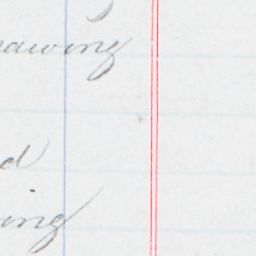 rawing
d
ing